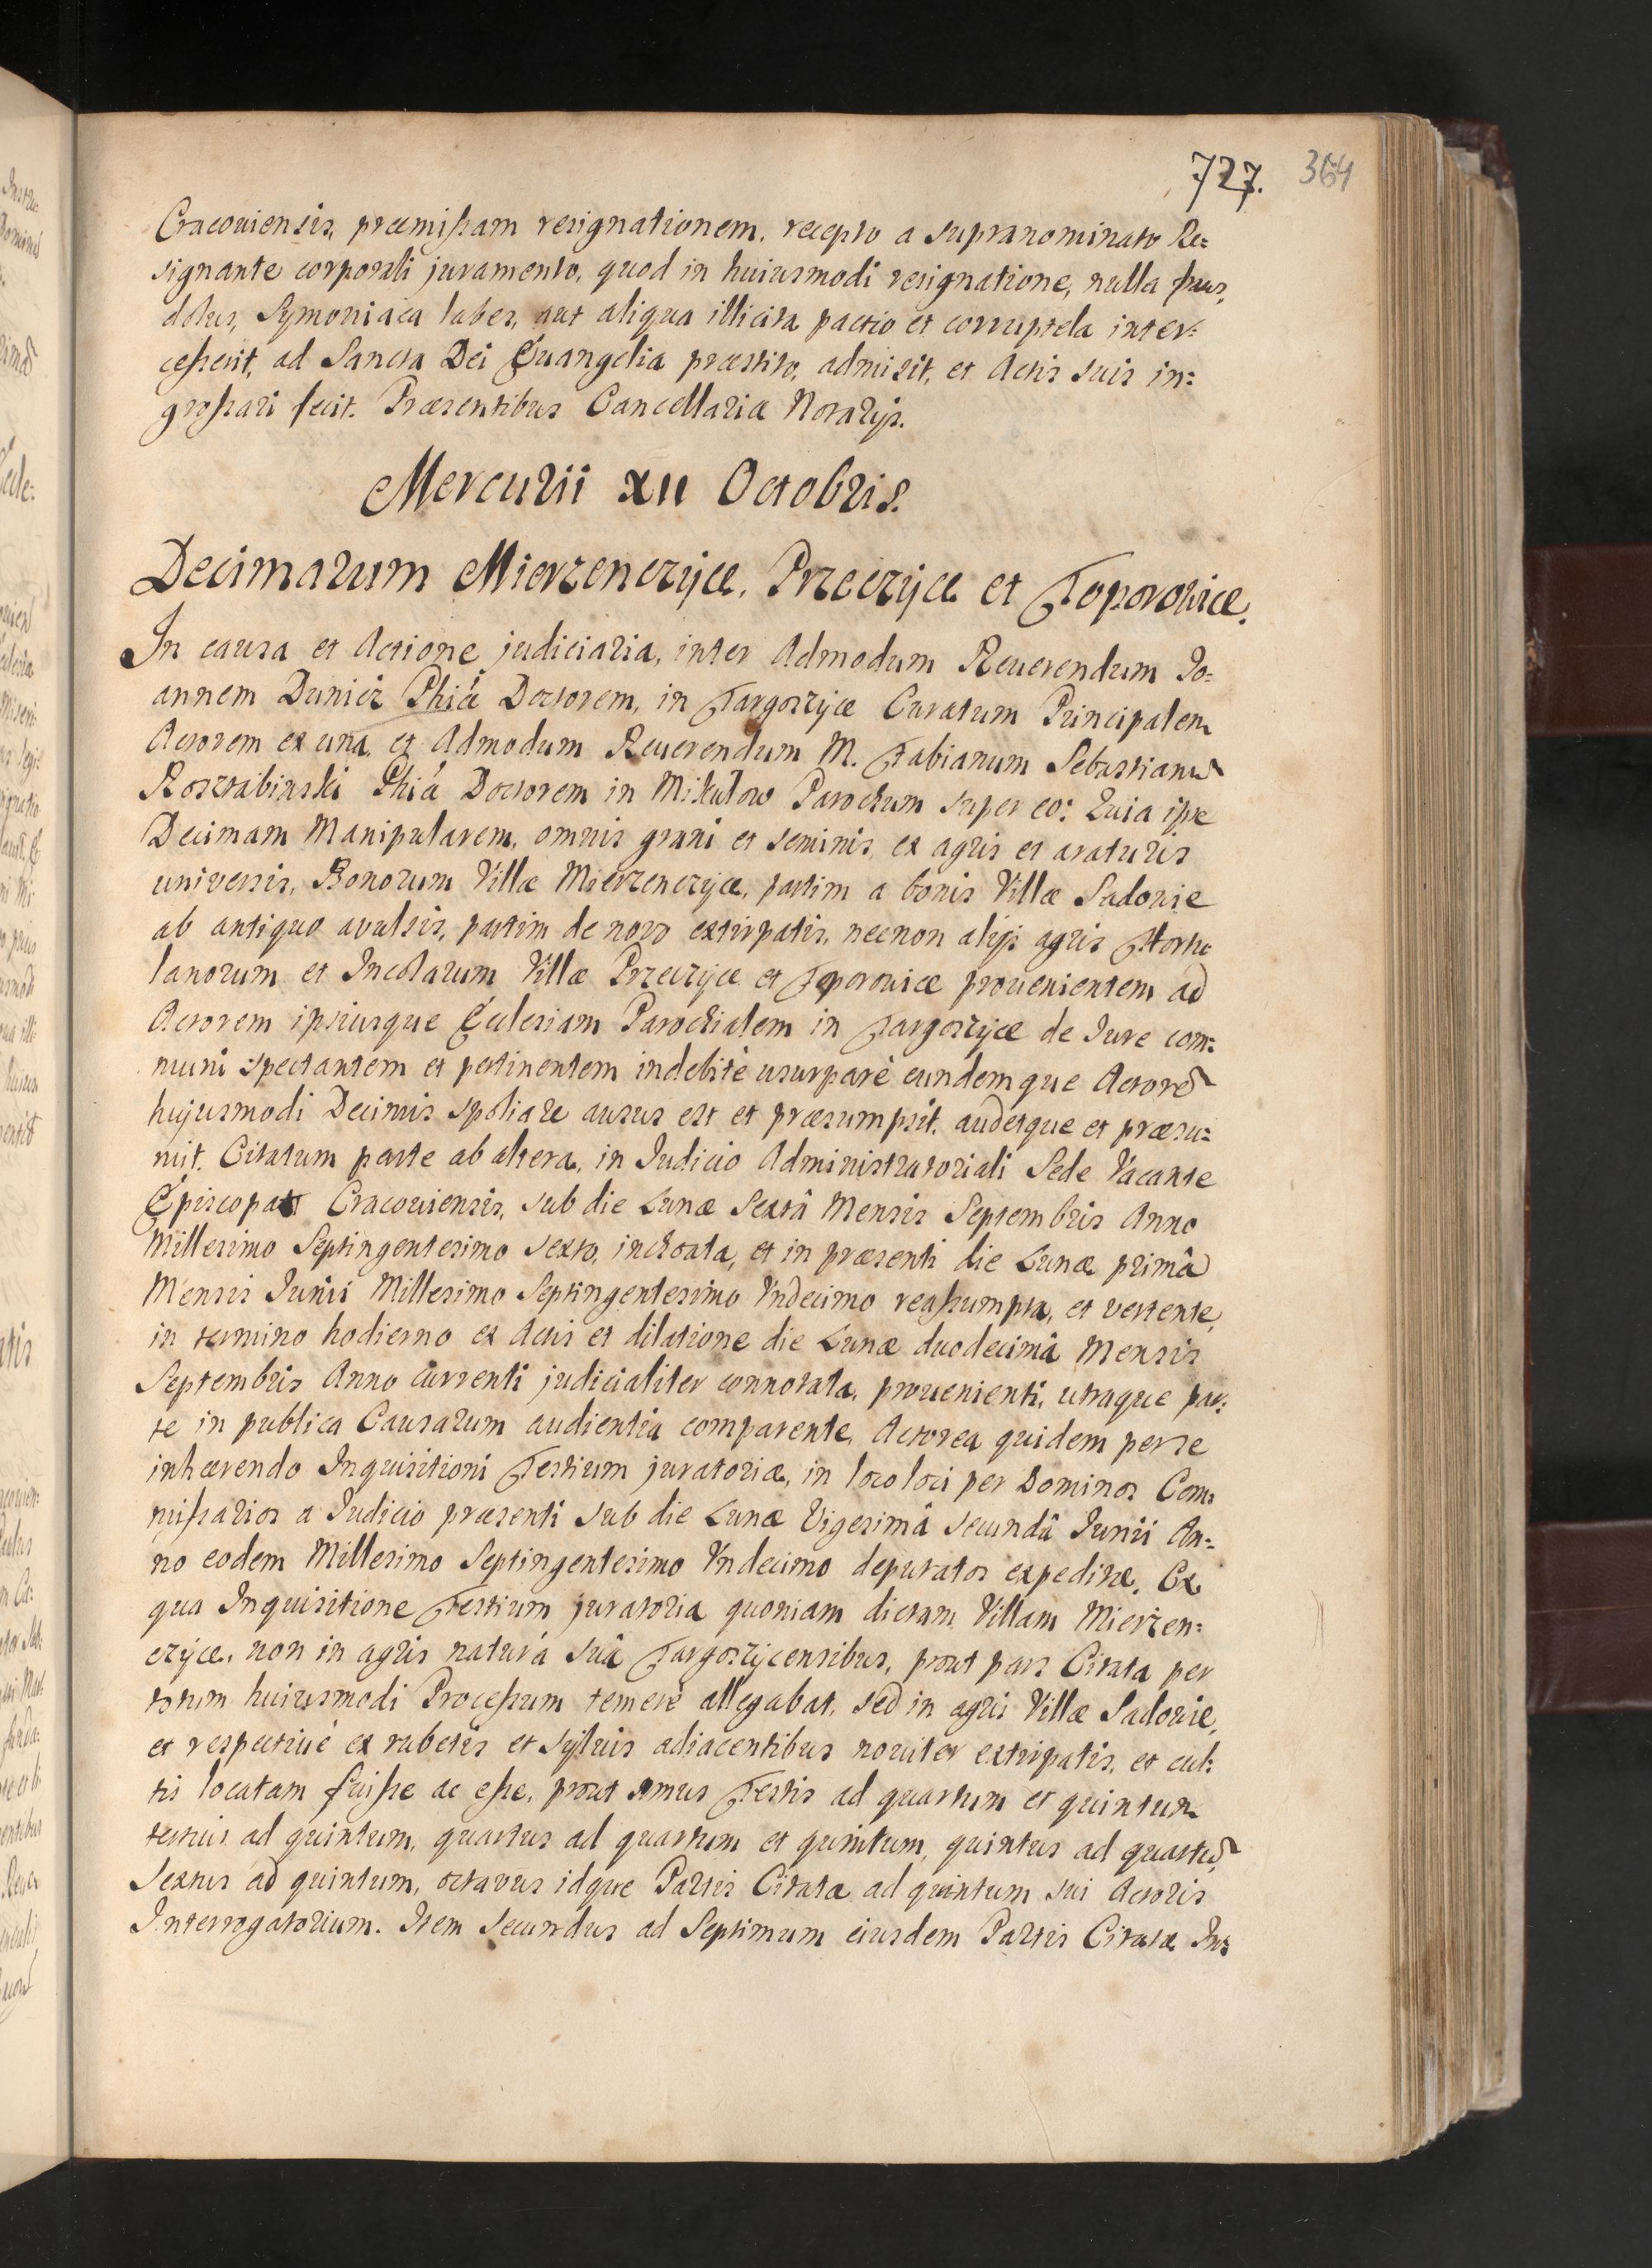 727. 364
Cracouiensis, præmissam resignationem, recepto a supranominato Re=
signante corporali juramento, quod in huiusmodi resignatione, nulla fraus,
dolus, Symoniaca labes, aut aliqua illicita pactio et corruptela inter=
cesserit, ad Sancta Dei Euangelia præstito, admisit, et Actis suis in=
grossari fecit. Præsentibus Cancellariæ Notarijs.
Mercurii XII Octobris.
Decimarum Mierzenczyce, Przeczyce et Toporowice.
In causa et Actione judiciaria, inter Admodum Reuerendum Jo=
annem Dunicz Phiæ Doctorem, in Targoszyce Curatum Principalem
Actorem ex una, et Admodum Reuerendum M. Fabianum Sebastianu
Roszrabinski Phiæ Doctorem in Mikulow Parochum super eo: Quia ipse
Decimam Manipularem, omnis grani et seminis, ex agris et araturis
universis, Bonorum Villæ Mierzenczyce, partim a bonis Villæ Sadowie
ab antiquo avulsis, partim de novo extirpatis, necnon alijs agris Hortu
lanorum et Incolarum Villæ Przeczyce et Toporowice prouenientem ad
Actorem ipsiusque Ecclesiam Parochialem in Targoszyce de Jure com=
muni spectantem et pertinentem indebitè usurparè eundemque Actore
hujusmodi Decimis spoliare ausus est et præsumpsit, audetque et præsu=
mit. Citatum parte ab altera, in Judicio Administratoriali Sede Vacante
Episcopat Cracouiensis, sub die Lunæ Sextâ Mensis Septembris Anno
Millesimo Septingentesimo sexto, inchoata, et in præsenti die Lunæ primâ
Mensis Junii Millesimo Septingentesimo Vndecimo reassumpta, et vertente,
in termino hodierno ex Actis et dilatione die Lunæ duodecimâ Mensis
Septembris Anno currenti judicialiter connotata, prouenienti, utraque par=
te in publica Causarum audientia comparente, Actorea quidem per se
inhærendo Inquisitioni Testium juratoriæ, in loco loci per Dominos Com=
missarios a Judicio præsenti sub die Lunæ Vigesimâ secundâ Junii An=
no eodem Millesimo Septingentesimo Vndecimo deputatos expeditæ. Ex
qua Inquisitione Testium juratoria quoniam dictam Villam Mierzen=
czyce, non in agris naturâ suâ Targoszycensibus, prout pars Citata per
totum huiusmodi Processum temerè allegabat, sed in agris Villæ Sadowie,
et respectiuè ex rubetis et syluis adiacentibus nouiter extirpatis, et cul=
tis locatam fuisse ac esse, prout Testis ad quartum et quintum
tertius ad quintum, quartus ad quartum et quintum, quintus ad quartu
Sextus ad quintum, octavus idque Partis Citatæ ad quintum sui Actoris
Interrogatorium. Item secundus ad Septimum eiusdem Partis Citatæ In=